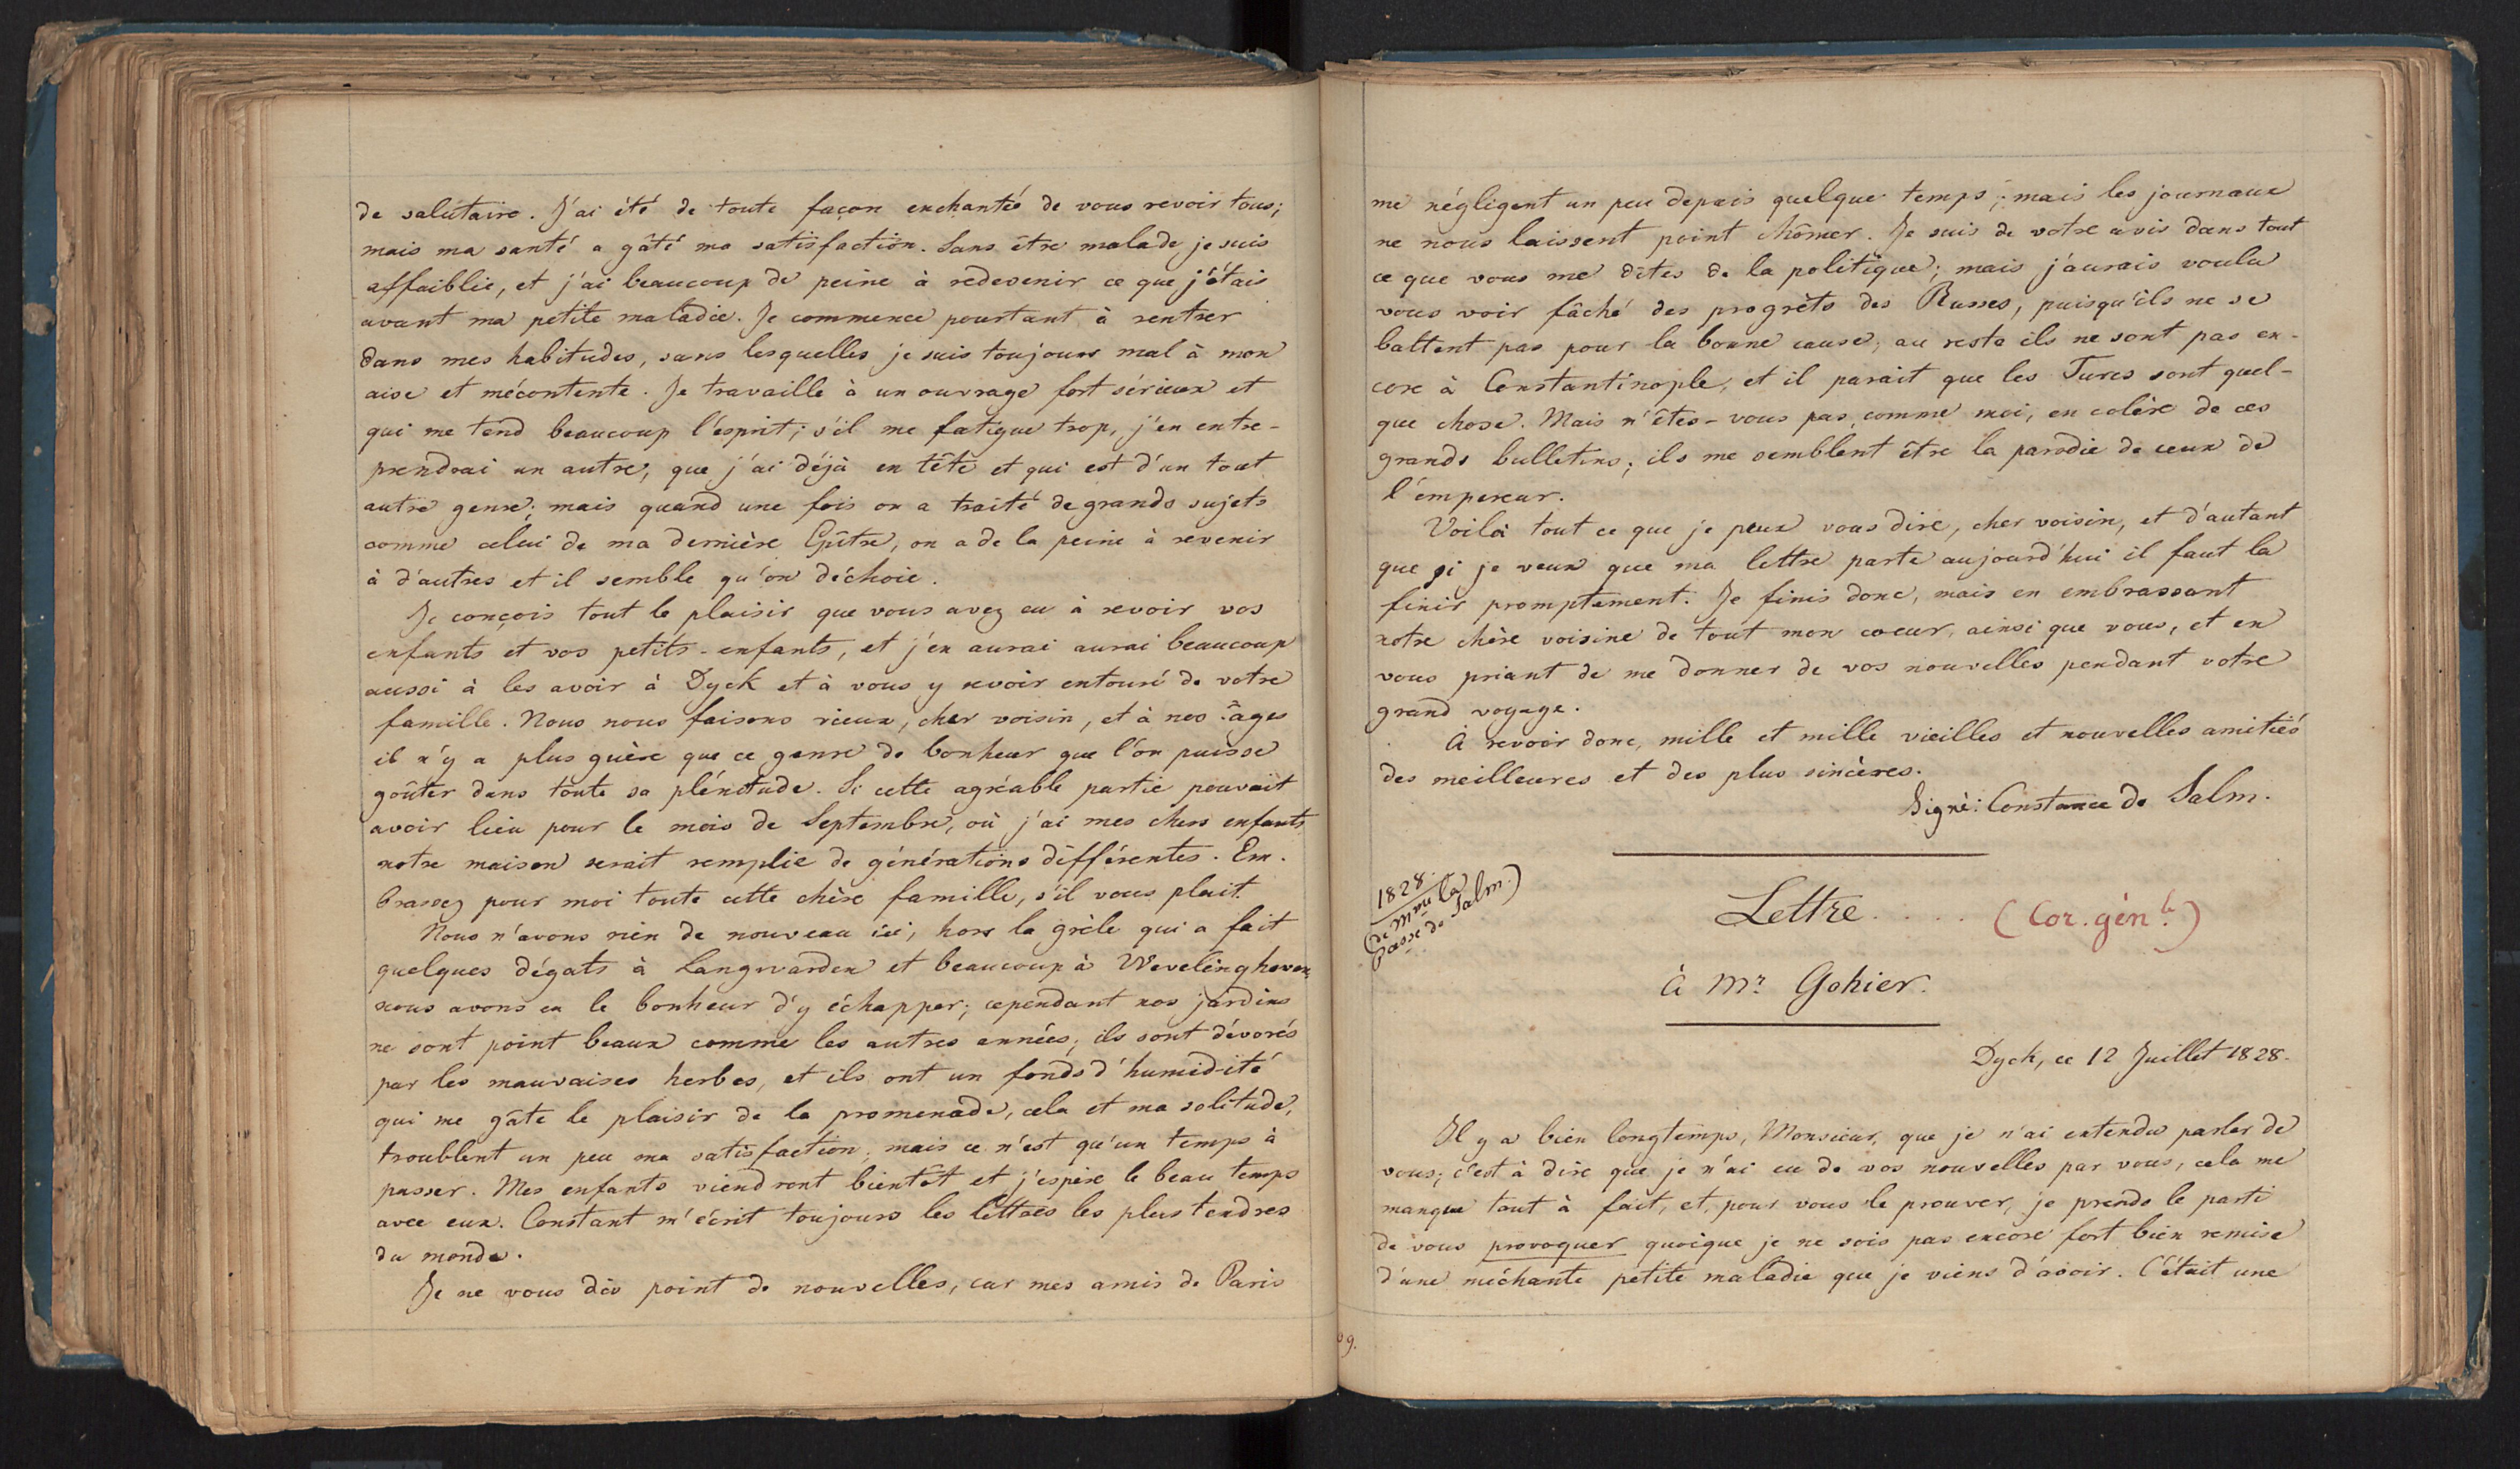 de salutaire. J'ai été de toute façon enchantée de vous revoir tous;
mais ma santé a gâté ma satisfaction. Sans être malade je suis
affaiblie, et j'ai beaucoup de peine à redevenir ce que j'étais
avant ma petite maladie. Je commence pourtant à rentrer
dans mes habitudes, sans lesquelles je suis toujours mal à mon
aise et mécontente. Je travaille à un ouvrage fort sérieux et
qui me tend beaucoup l'esprit; s'il me fatigue trop, j'en entre-
prendrai un autre, que j'ai déjà en tête et qui est d'un tout
autre genre; mais quand une fois on a traité de grands sujets
comme celui de ma dernière Epître, on a de la peine à revenir
à d'autres et il semble qu'on déchoie.
Je conçois tout le plaisir que vous avez eu à revoir vos
enfants et vos petits-enfants, et j'en aurai aurai beaucoup
aussi à les avoir à Dyck et à vous y revoir entouré de votre
famille. Nous nous faisons vieux, cher voisin, et à nos âges
il n'y a plus guère que ce genre de bonheur que l'on puisse
goûter dans toute sa plénitude. Si cette agréable partie pouvait
avoir lieu pour le mois de Septembre, où j'ai mes chers enfants
notre maison serait remplie de générations différentes. Em-
brassez pour moi toute cette chère famille, s'il vous plait.
Nous n'avons rien de nouveau ici, hors la grèle qui a fait
quelques dégats à Langwarden et beaucoup à Wevelinghoven,
nous avons eu le bonheur d'y échapper; cependant nos jardins
ne sont point beaux comme les autres années; ils sont dévorés
par les mauvaises herbes, et ils ont un fonds d'humidité
qui me gâte le plaisir de la promenade, cela et ma solitude,
troublent un peu ma satisfaction; mais ce n'est qu'un temps à
passer. Mes enfants viendront bientôt et j'espère le beau temps
avec eux. Constant m'écrit toujours les lettres les plus tendres
du monde.
Je ne vous dis point de nouvelles, car mes amis de Paris
me négligent un peu depuis quelque temps; mais les journaux
ne nous laissent point chômer. Je suis de votre avis dans tout
ce que vous me dites de la politique; mais j'aurais voulu
vous voir fâché des progrèts des Russes, puisqu'ils ne se
battent pas pour la bonne cause; au reste ils ne sont pas en-
core à Constantinople, et il parait que les Turcs sont quel-
que chose. Mais n'êtes-vous pas, comme moi, en colère de ces
grands bulletins; ils me semblent être la parodie de ceux de
l'empereur.
Voilà tout ce que je peux vous dire, cher voisin, et d'autant
que si je veux que ma lettre parte aujourd'hui il faut la
finir promptement. Je finis donc, mais en embrassant
notre chère voisine de tout mon coeur, ainsi que vous, et en
vous priant de me donner de vos nouvelles pendant votre
grand voyage.
À revoir donc, mille et mille vieilles et nouvelles amitiés
des meilleures et des plus sincères.
Signé: Constance de Salm.
1828.
(de Mme la
Psse de Salm.)
Lettre.... (Cor. génle.)
à Mr Gohier.
Dyck, ce 12 Juillet 1828.
Il y a bien longtemps, Monsieur, que je n'ai entendu parler de
vous; c'est à dire que je n'ai eu de vos nouvelles par vous, cela me
manque tout à fait, et, pour vous le prouver, je prends le parti
de vous provoquer quoique je ne sois pas encore fort bien remise
d'une méchante petite maladie que je viens d'avoir. C'était une
9.